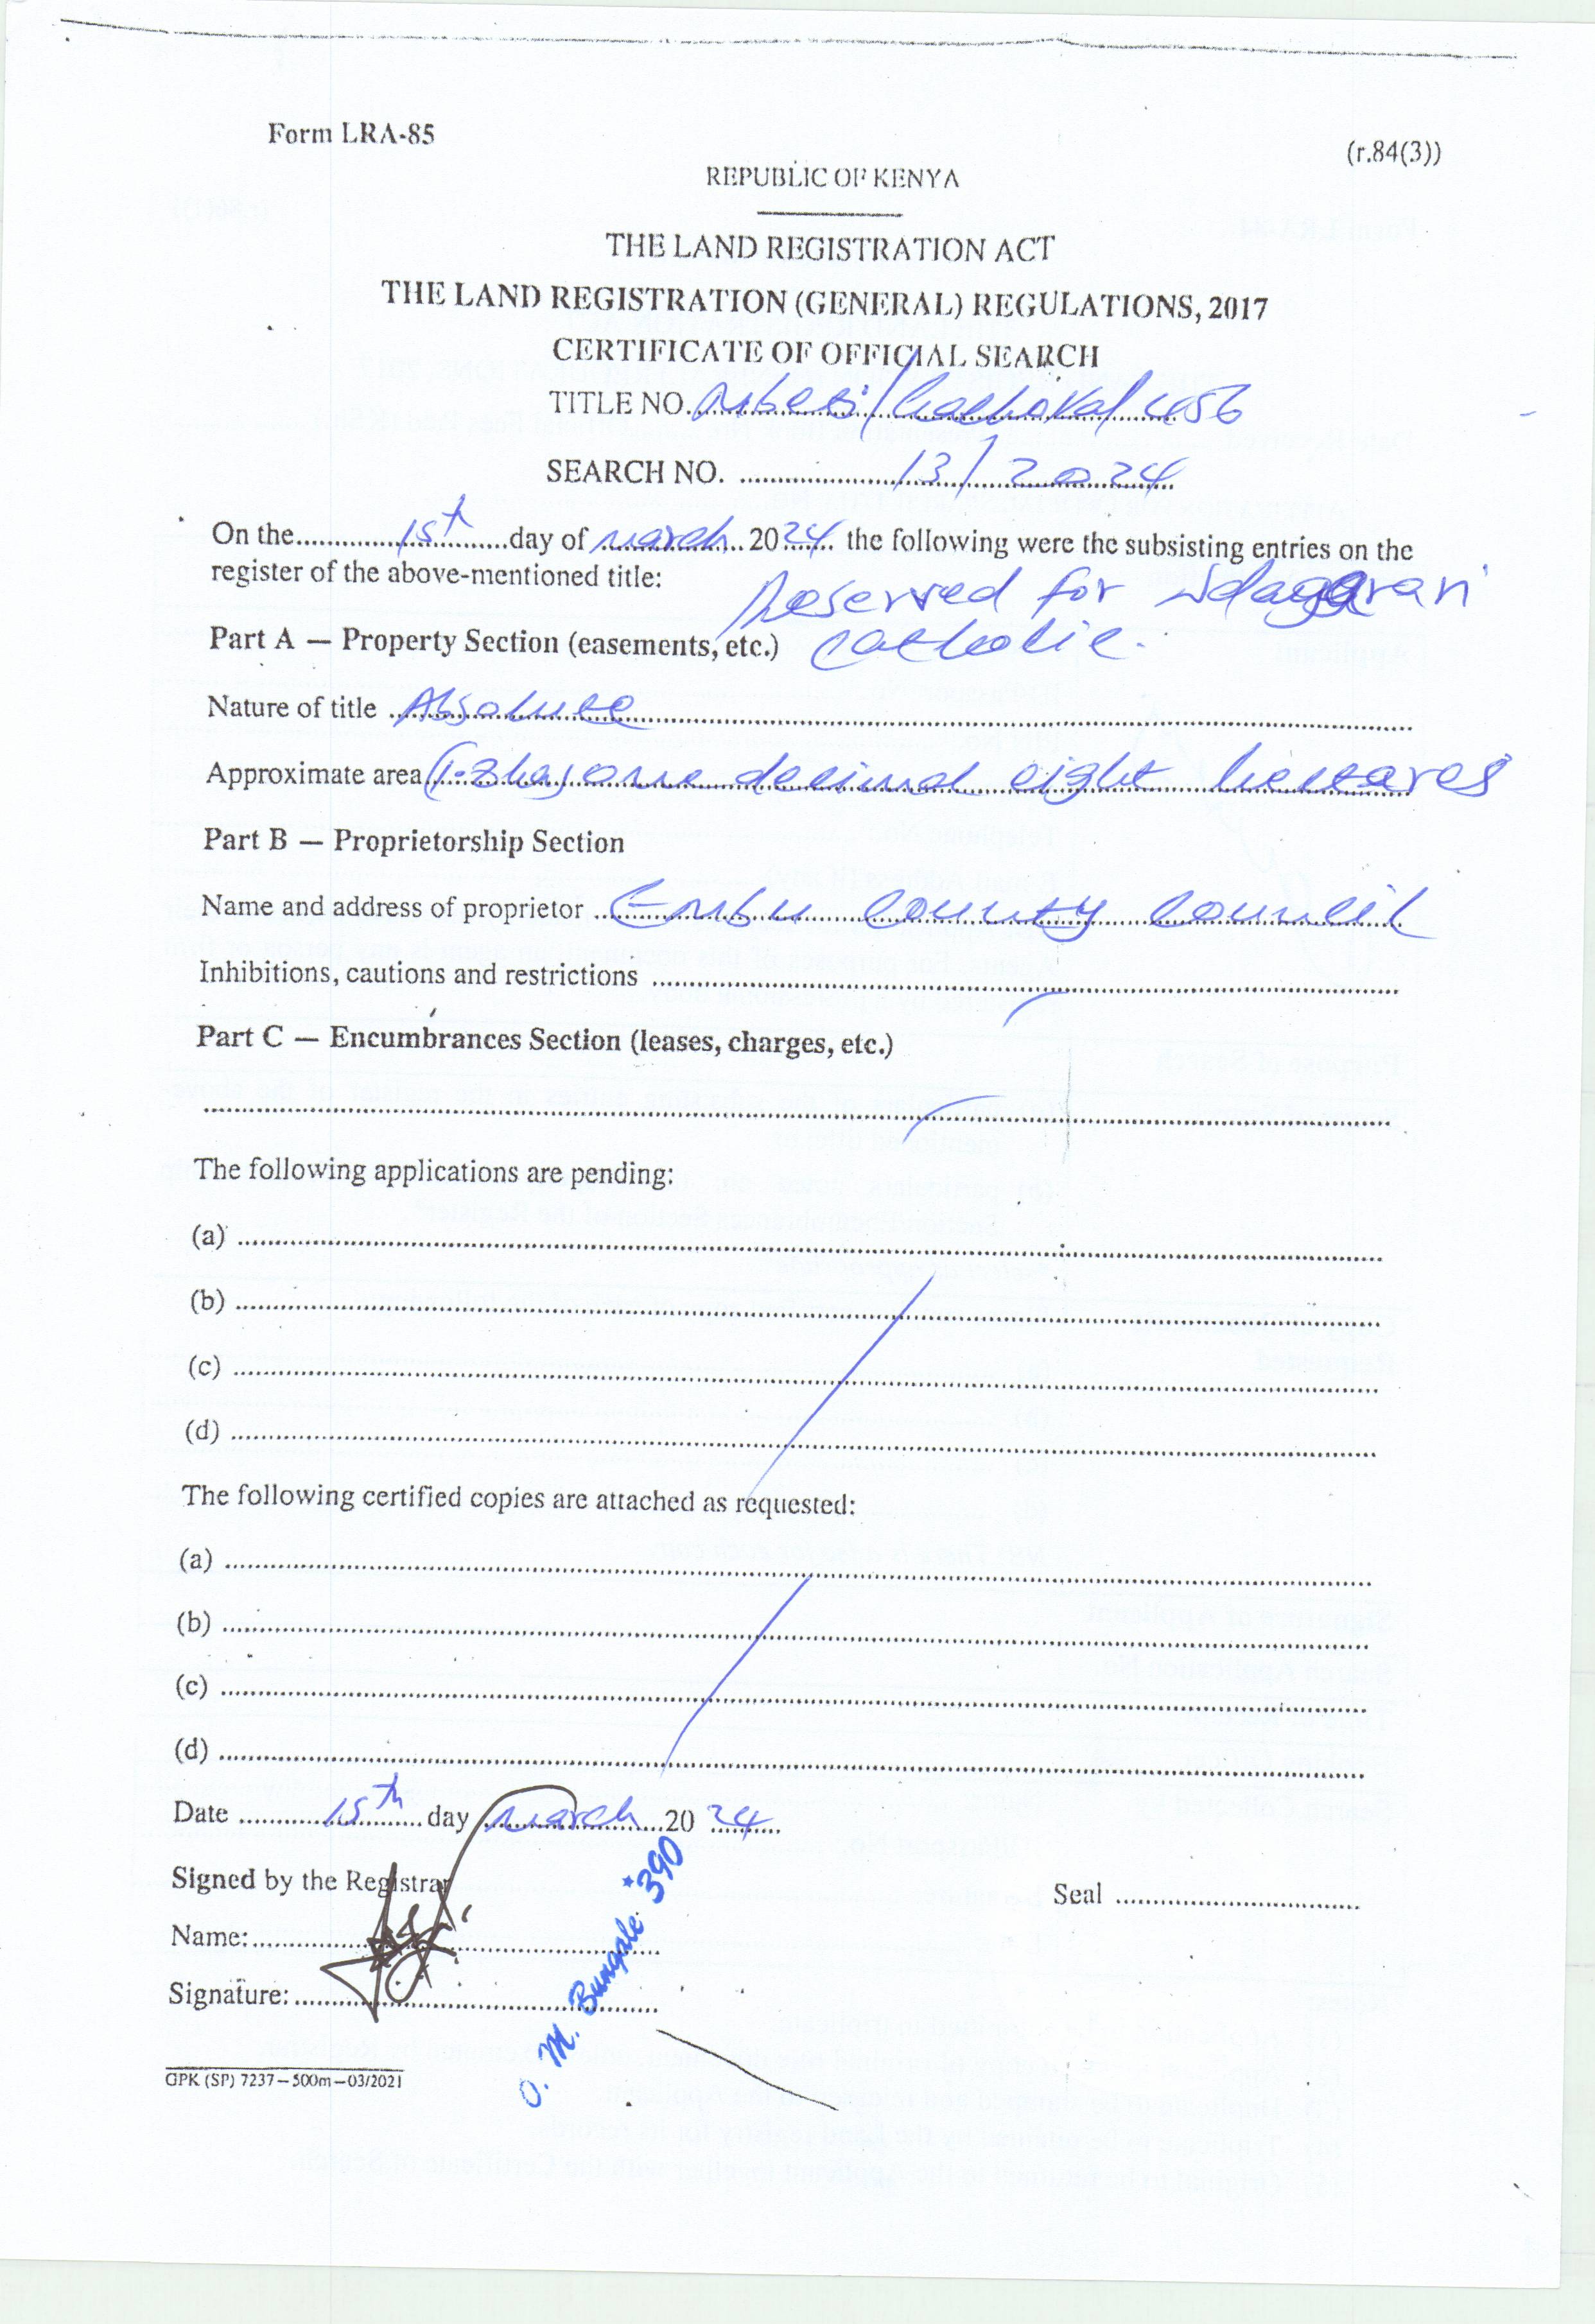 Form LRA-85
(r.84(3))
REPUBLIC OF KENYA
THE LAND REGISTRATION ACT
THE LAND REGISTRATION (GENERAL) REGULATIONS, 2017
CERTIFICATE OF OFFICIAL SEARCH
TITLE NO. 456
SEARCH NO. 13/2024
On the 15th day of march 2024 the following were the subsisting entries on the
register of the above-mentioned title:
Reserved for
Part A — Property Section (easements, etc.) catholic.
Nature of title Absolute
Approximate area (1.8ha) one decimal eight hectares
Part B — Proprietorship Section
Name and address of proprietor Embu County Council
Inhibitions, cautions and restrictions
Part C — Encumbrances Section (leases, charges, etc.)
The following applications are pending:
(a)
(b)
(c)
(d)
The following certified copies are attached as requested:
(a)
(b)
(c)
(d)
Date 15th day march 2024
Signed by the Registrar
Seal
Name:
Signature:
O. M. Bungale *390
GPK (SP) 7237—500m—03/2021